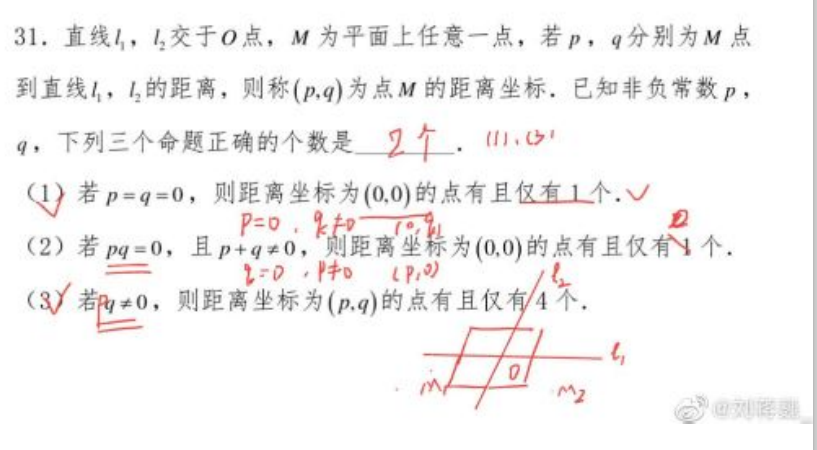 31. 直线l₁, l₂交于O点, M 为平面上任意一点, 若p, q分别为M 点
到直线l₁, l₂的距离, 则称(p,q)为点M 的距离坐标. 已知非负常数p,
q, 下列三个命题正确的个数是 2个 . (1).(3)
(1) 若 p=q=0, 则距离坐标为(0,0)的点有且仅有1个. ✓
p=0, q≠0 (0,q) 2
(2) 若 pq=0, 且 p+q≠0, 则距离坐标为(0,0)的点有且仅有1个.
q=0, p≠0 (p,0)
(3) 若pq≠0, 则距离坐标为(p,q)的点有且仅有4个.
l₂
l₁
O
M₁ M₂